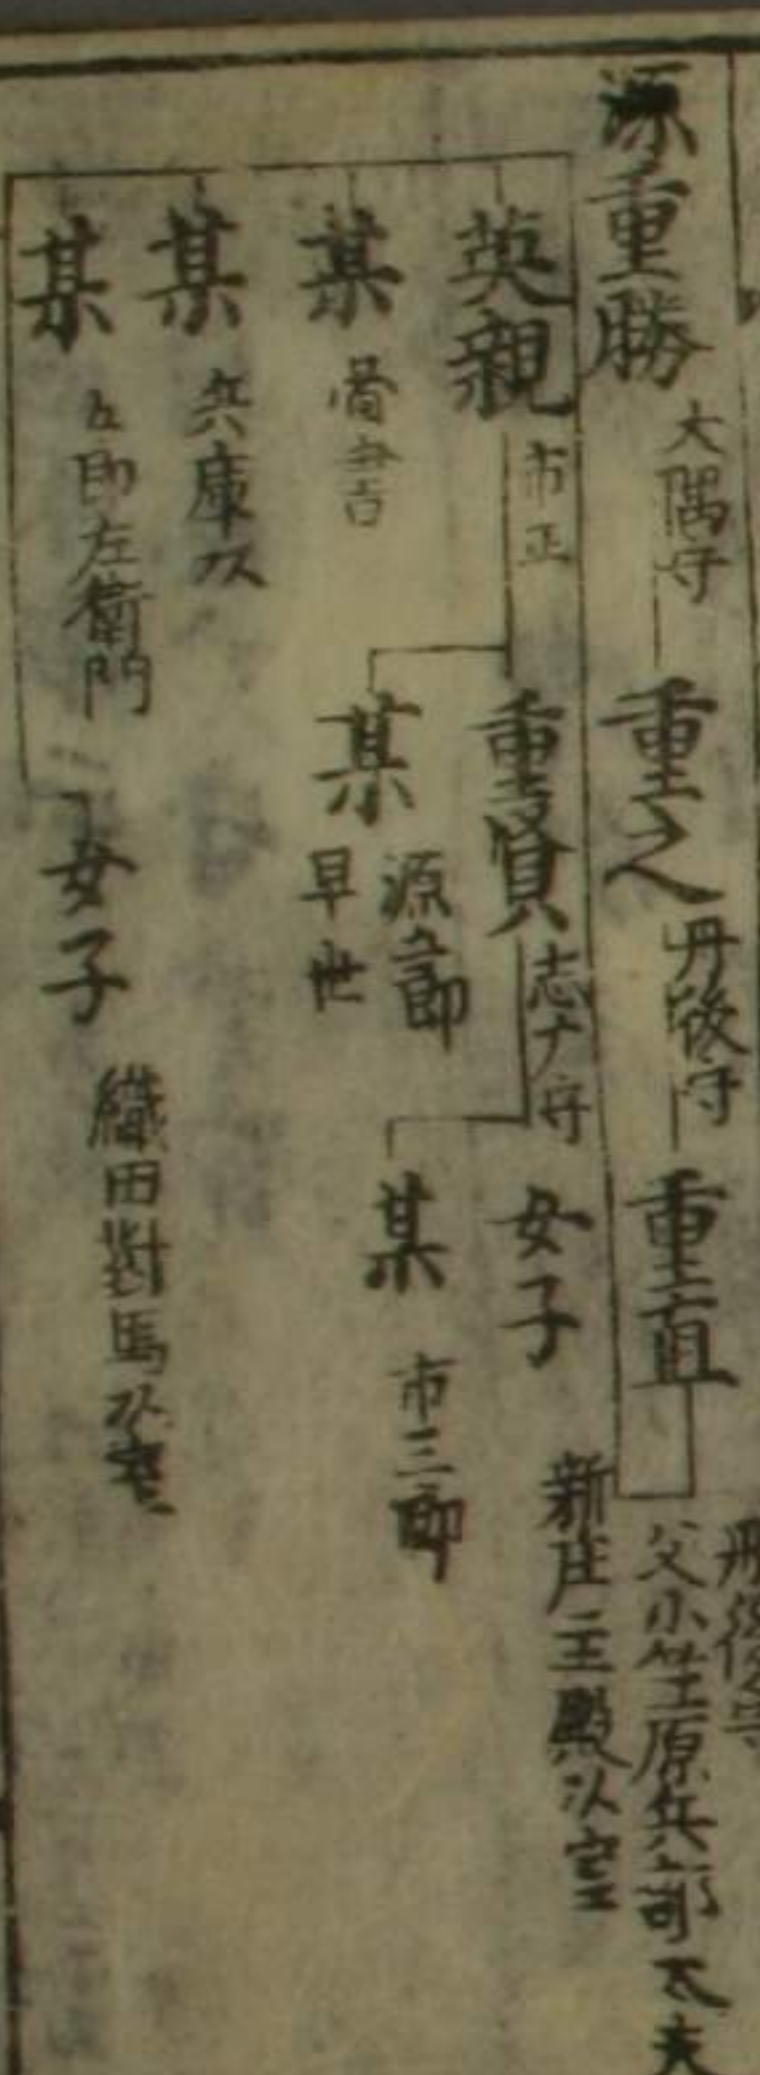 源重勝 大隅守
重之 丹後守
重直
丹後守
父小笠原兵部太夫
英親 市正
重賢 志ナ守
女子 新庄主殿以室
某 市三郎
某 源五郎
早世
某
某 兵庫以
某 五郎左衛門
女子 織田對馬以室